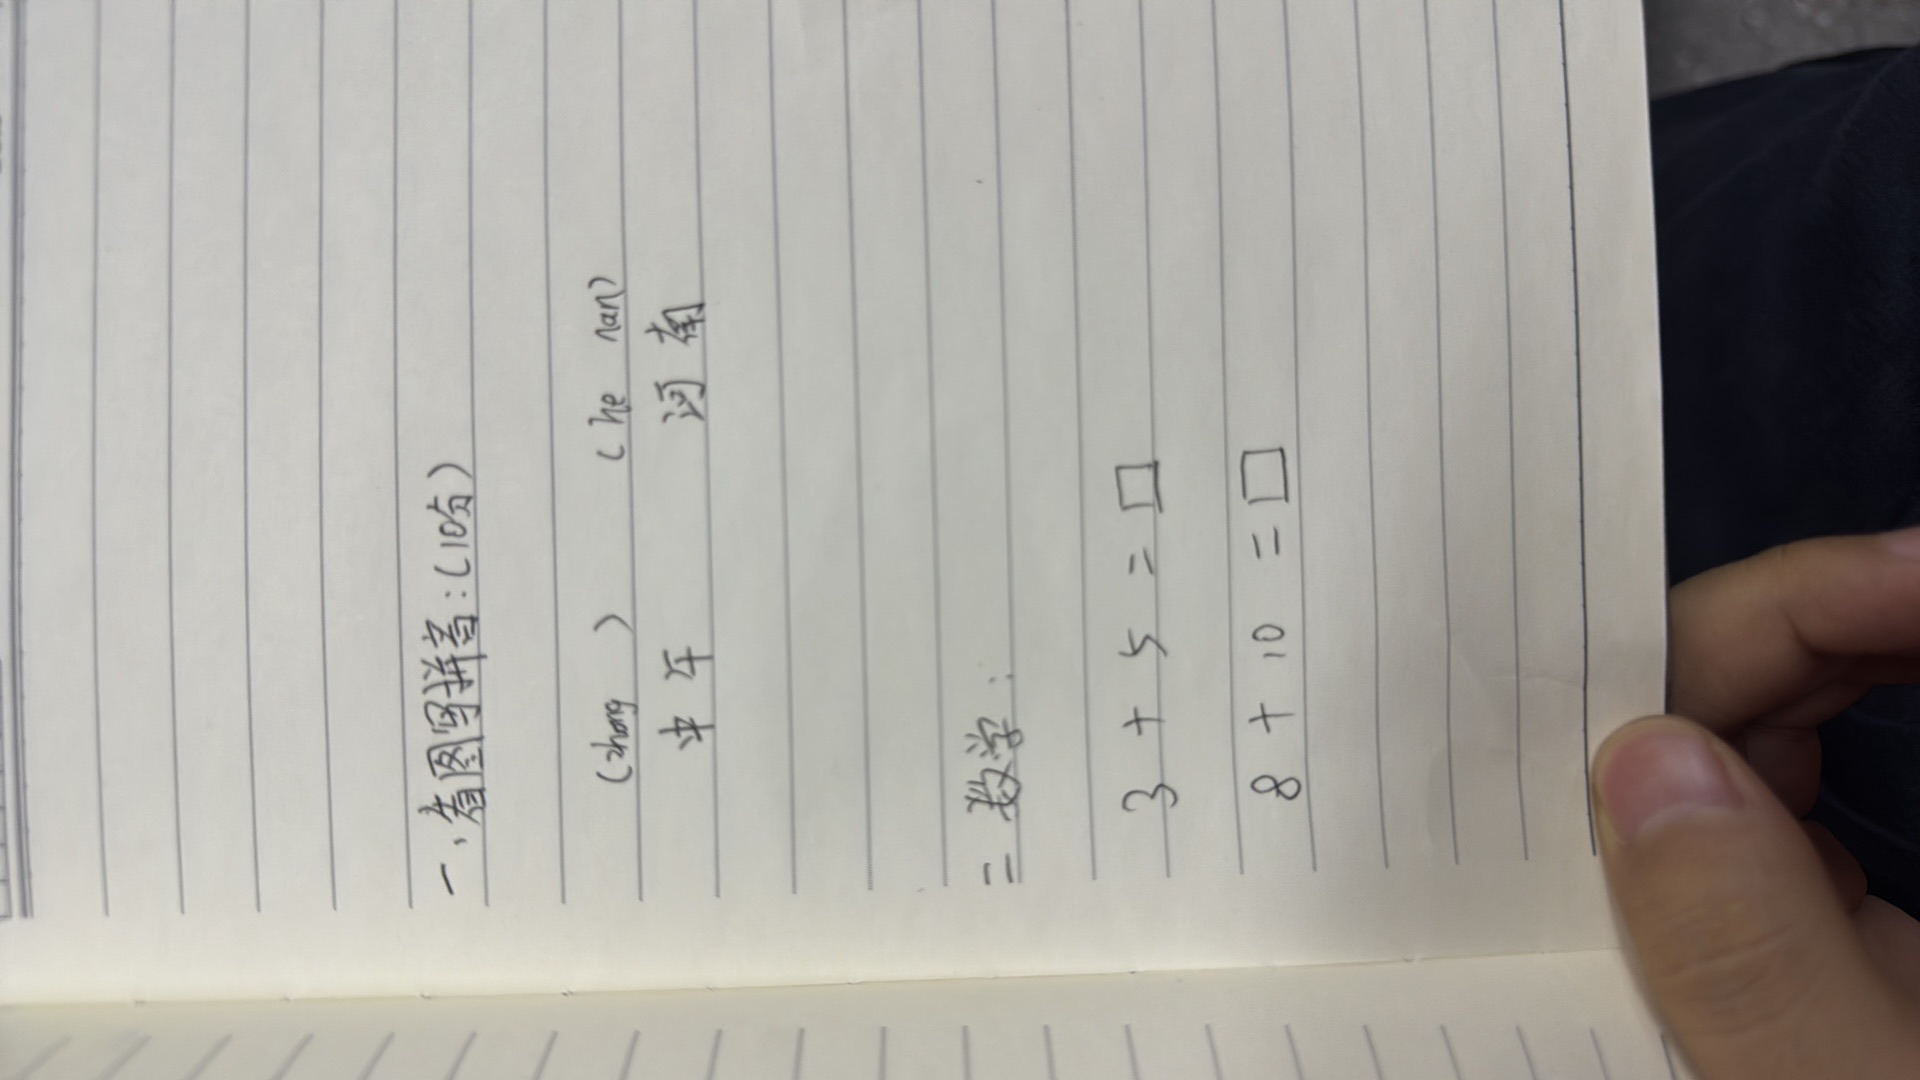 一、看图写拼音:(10分)
(zhong ) (he nan)
中午 河南
二 数学:
3 + 5 = □
8 + 10 = □